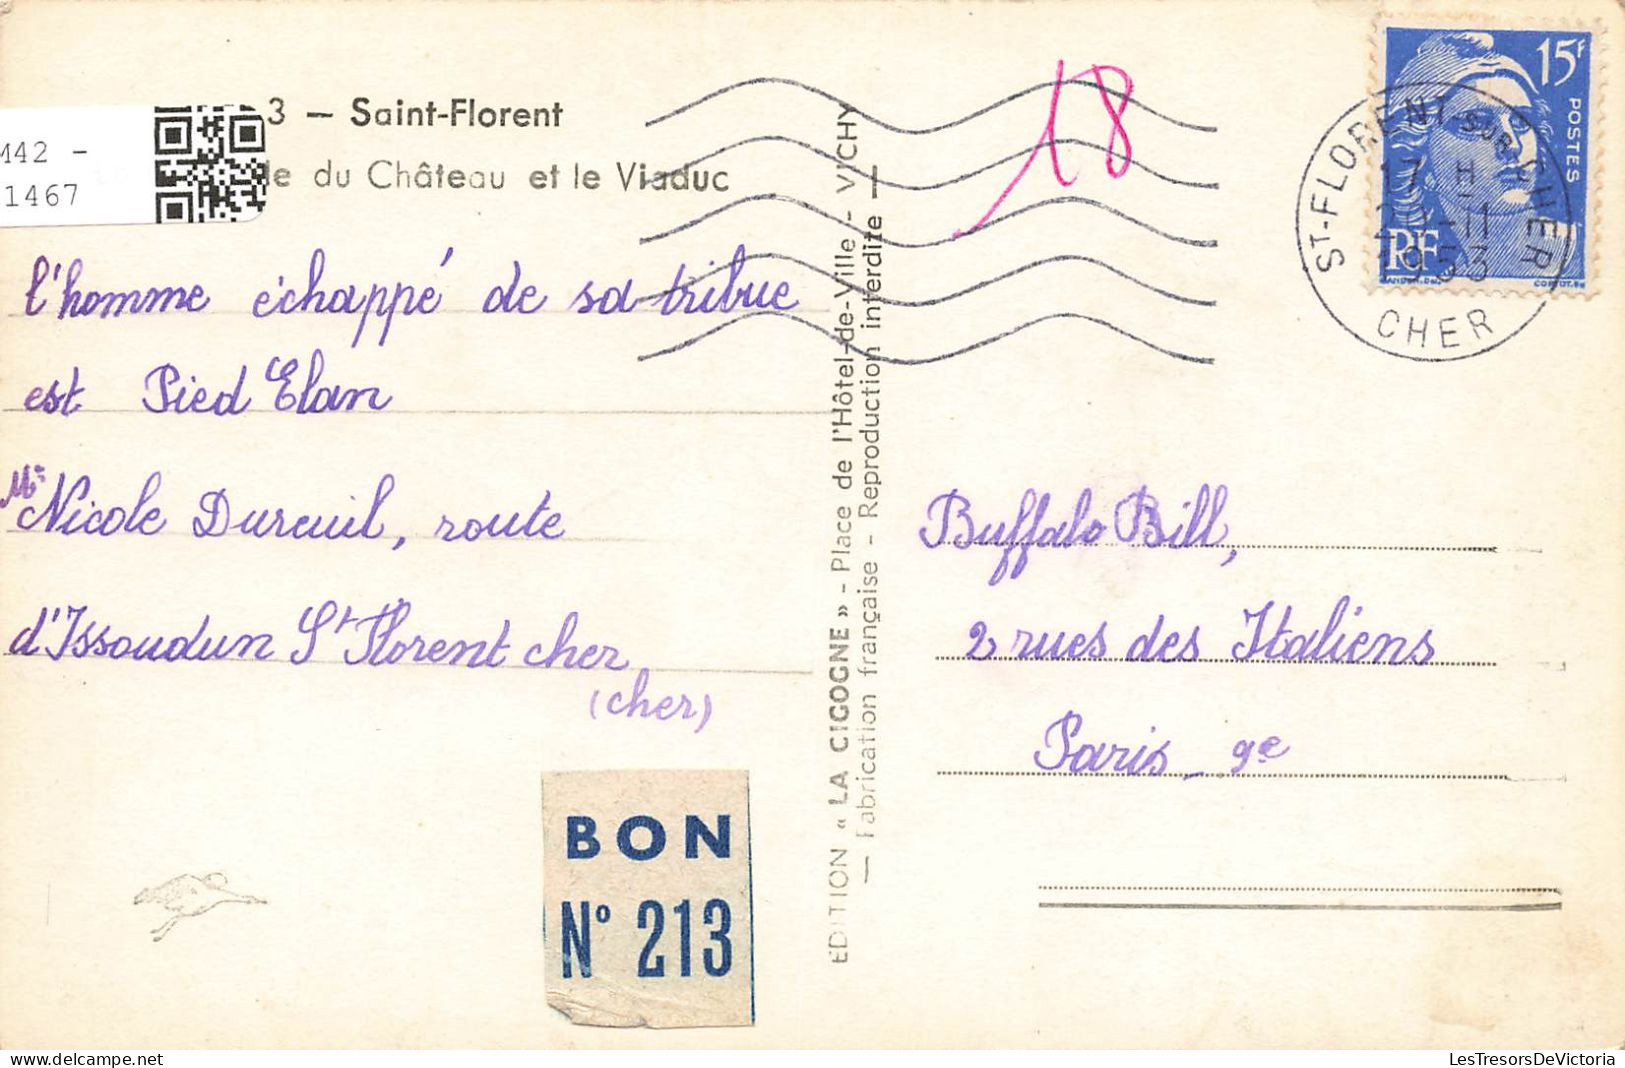 3 — Saint-Florent
du Château et le Viaduc
M42 -
1467
l'homme échappé de sa tribue
est Pied Elan
Nicole Dureuil, route
d'Issoudun St Florent cher,
(cher)
BON
N° 213
EDITION « LA CIGOGNE » - Place de l'Hôtel-de-Ville - VICHY
— Fabrication française - Reproduction interdite —
18
15F
POSTES
RF
ST-FLORENT-SUR-CHER
17 H
1953
CHER
Buffalo Bill,
2 rues des Italiens
Paris - 9e
LesTresorsDeVictoria.com